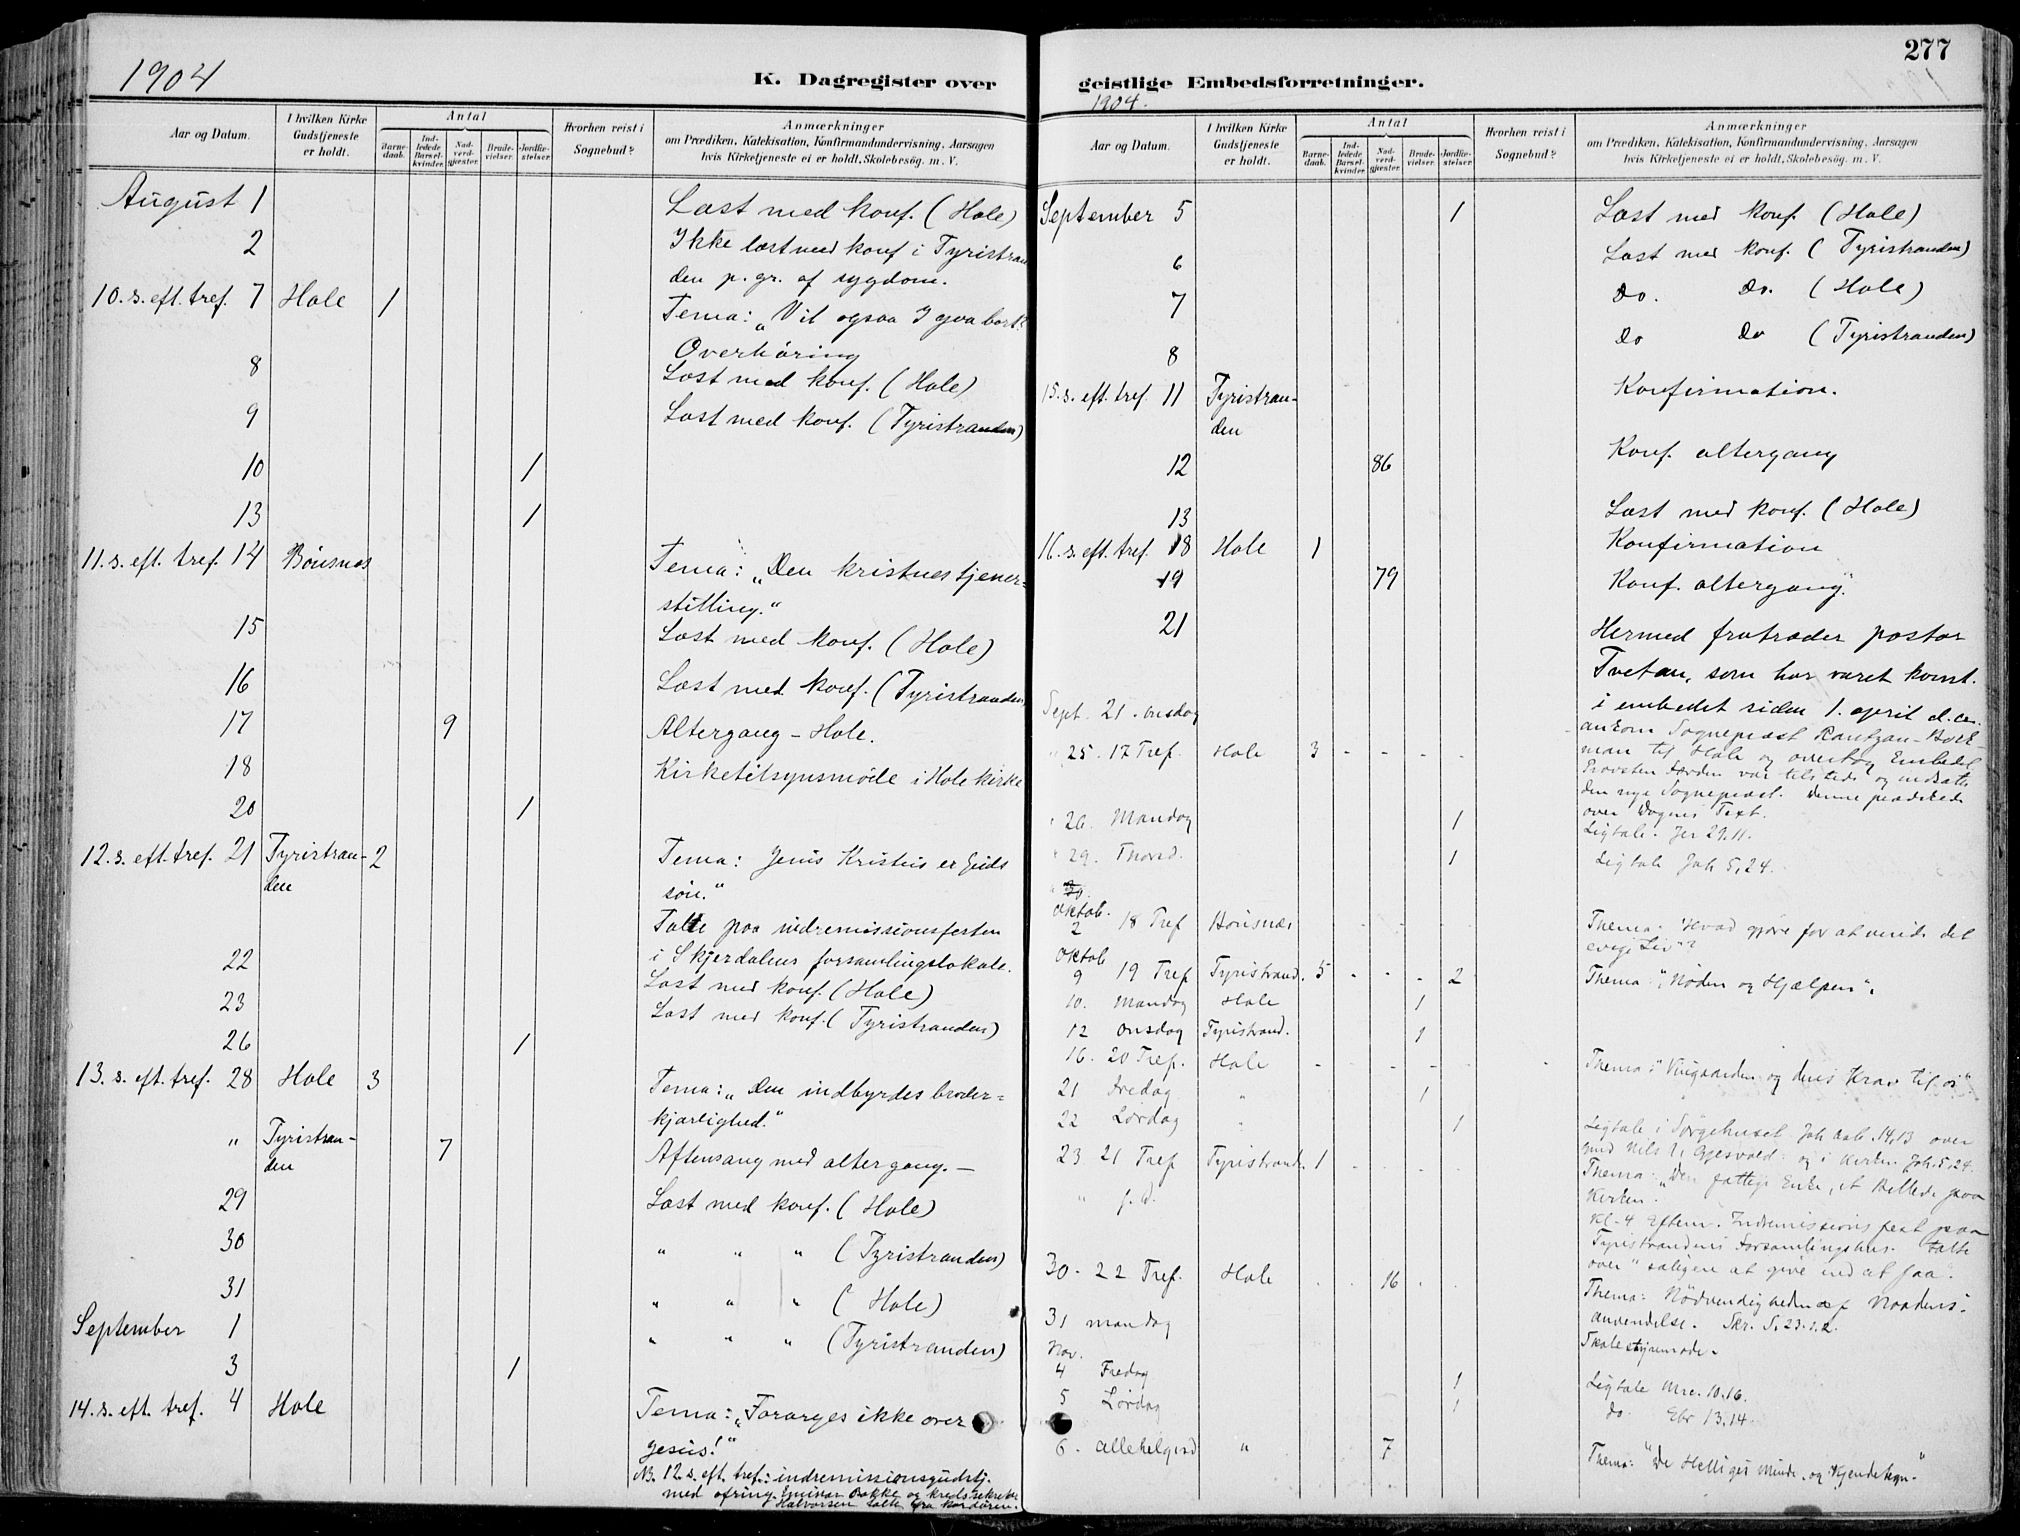 277
1904
K. Dagregister over
geistlige Embedsforretninger.
1904.
Aar og Datum.
I hvilken Kirke Gudstjeneste er holdt.
Antal
Barnedaab.
Indledede Barselkvinder.
Nadverdgjester.
Brudevielser.
Jordfæstelser.
Hvorhen reist i Sognebud?
Anmærkninger
om Prædiken, Katekisation, Konfirmandundervisning, Aarsagen
hvis Kirketjeneste ei er holdt, Skolebesög. m. V.
August 1 Læst med konf. (Hole)
2 Ikke læst med konf i Tyristran
den p. gr. af sygdom.
10. s. eft. tref. 7 Hole 1 Tema: „Vil ogsaa I gaa bort?
Overhøring
8 Læst med konf. (Hole)
9 Læst med konf. (Tyristranden)
10 1
13 1
11. s. eft. tref. 14 Bønsnæs Tema: „Den kristnes tjener=
stilling.“
15 Læst med konf. (Hole)
16 Læst med konf. (Tyristranden
17 9 Altergang – Hole.
18 Kirketilsynsmøde i Hole kirke
20 1
12. s. eft. tref. 21 Tyristran- 2 Tema: Jesus Kristus er Guds
den søn.“
Talte paa indremissionsfesten
22 i Skjerdalens forsamlingslokale.
Læst med konf. (Hole)
23 Læst med konf. (Tyristranden)
26 1
13. s. eft. tref. 28 Hole 3 Tema: „Den indbyrdes broder=
kjærlighed.“
„ Tyristran- 7 Aftensang med altergang. –
den
29 Læst med konf. (Hole)
30 „ „ „ (Tyristranden)
31 „ „ „ (Hole)
September 1 „ „ „ (Tyristranden)
3 1
14. s. eft. tref. 4 Hole Tema: „Forarges ikke over
Jesus!“
NB. 12. s. eft. tref.: indremissionsgudstj.
med ofring. Emissær Bakke og kredssekretær
Halvorsen talte fra kordøren.
Aar og Datum.
I hvilken Kirke Gudstjeneste er holdt.
Antal
Barnedaab.
Indledede Barselkvinder.
Nadverdgjester.
Brudevielser.
Jordfæstelser.
Hvorhen reist i Sognebud?
Anmærkninger
om Prædiken, Katekisation, Konfirmandundervisning, Aarsagen
hvis Kirketjeneste ei er holdt, Skolebesög. m. V.
September 5 1 Læst med konf. (Hole)
6 Læst med konf. (Tyristranden)
7 Do. Do. (Hole)
8 Do Do (Tyristranden)
15. s. eft. tref. 11 Tyristran- Konfirmation.
den
12 86 Konf. altergang
13 Læst med konf. (Hole)
16. s. eft. tref. 18 Hole 1 Konfirmation
19 79 Konf. altergang.
21 Hermed fratræder pastor
Tvetan, som har været konst.
i embedet siden 1. april d. a.
Sept. 21. onsdag ankom Sognepræst Rantzau-Bock-
man til Hole og overtog Embedet
„ 25. 17 Tref. Hole 3 - - - - Provsten Jorden var tilstede og indsatte
den nye Sognepræst. Denne prædikede
over Dagens Text.
„ 26. Mandag 1 Ligtale. Jer 29.11.
„ 29. Thorsd. 1 Ligtale Joh 5,24.
oktob.
2 18 Tref Bønsnæs Thema. "Hvad gjøre for at vinde det
evige Liv"?
oktob
9 19 Tref Tyristrand. 5 - - - 2 Thema: "Nøden og Hjælpen".
10. Mandag Hole 1
12 onsdag Tyristrand. 1
16. 20 Tref. Hole - - - - - Thema: "Vingaarden og dens Krav til os".
21 Fredag „ 1
22 Lørdag „ 1 Ligtale i Sørgehuset Joh Aab. 14,13 over
Gjesvold: og i Kirken Joh. 5,24.
23 21 Tref Tyristrand. 1 - - - - Thema: „Den fattige Enke, et Billede paa
Kirken.
„ s. d. Kl. 4 Efterm. Indremissionsfest paa
Tyristrandens Forsamlingshus. talte
over "saligere at give end at faa".
30. 22 Tref. Hole . . 16 . . Thema: Nødvendigheden af Naadens
anvendelse.
31 mandag Skolestyremøde.
Nov.
4 Fredag 1 Ligtale Mrc. 10.16.
5 Lørdag 1 do. Ebr 13,14.
6. allehelgend „ 7 Thema: "De Helliges Minde, og Kjendetegn."